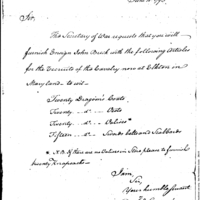 Sir,
The Secretary of War requests that you will
furnish Ensign John Buck with the following articles
for the Recruits of the Cavalry now at Elkton in
Maryland to wit—
Twenty Dragoon's Coats
Twenty do Vests
Twenty do
Fifteen do Swords belts and Scabbards
* N.B. If there are no in Store please to furnish
twenty Knapsacks
I am,
Sir,
Your humble servant